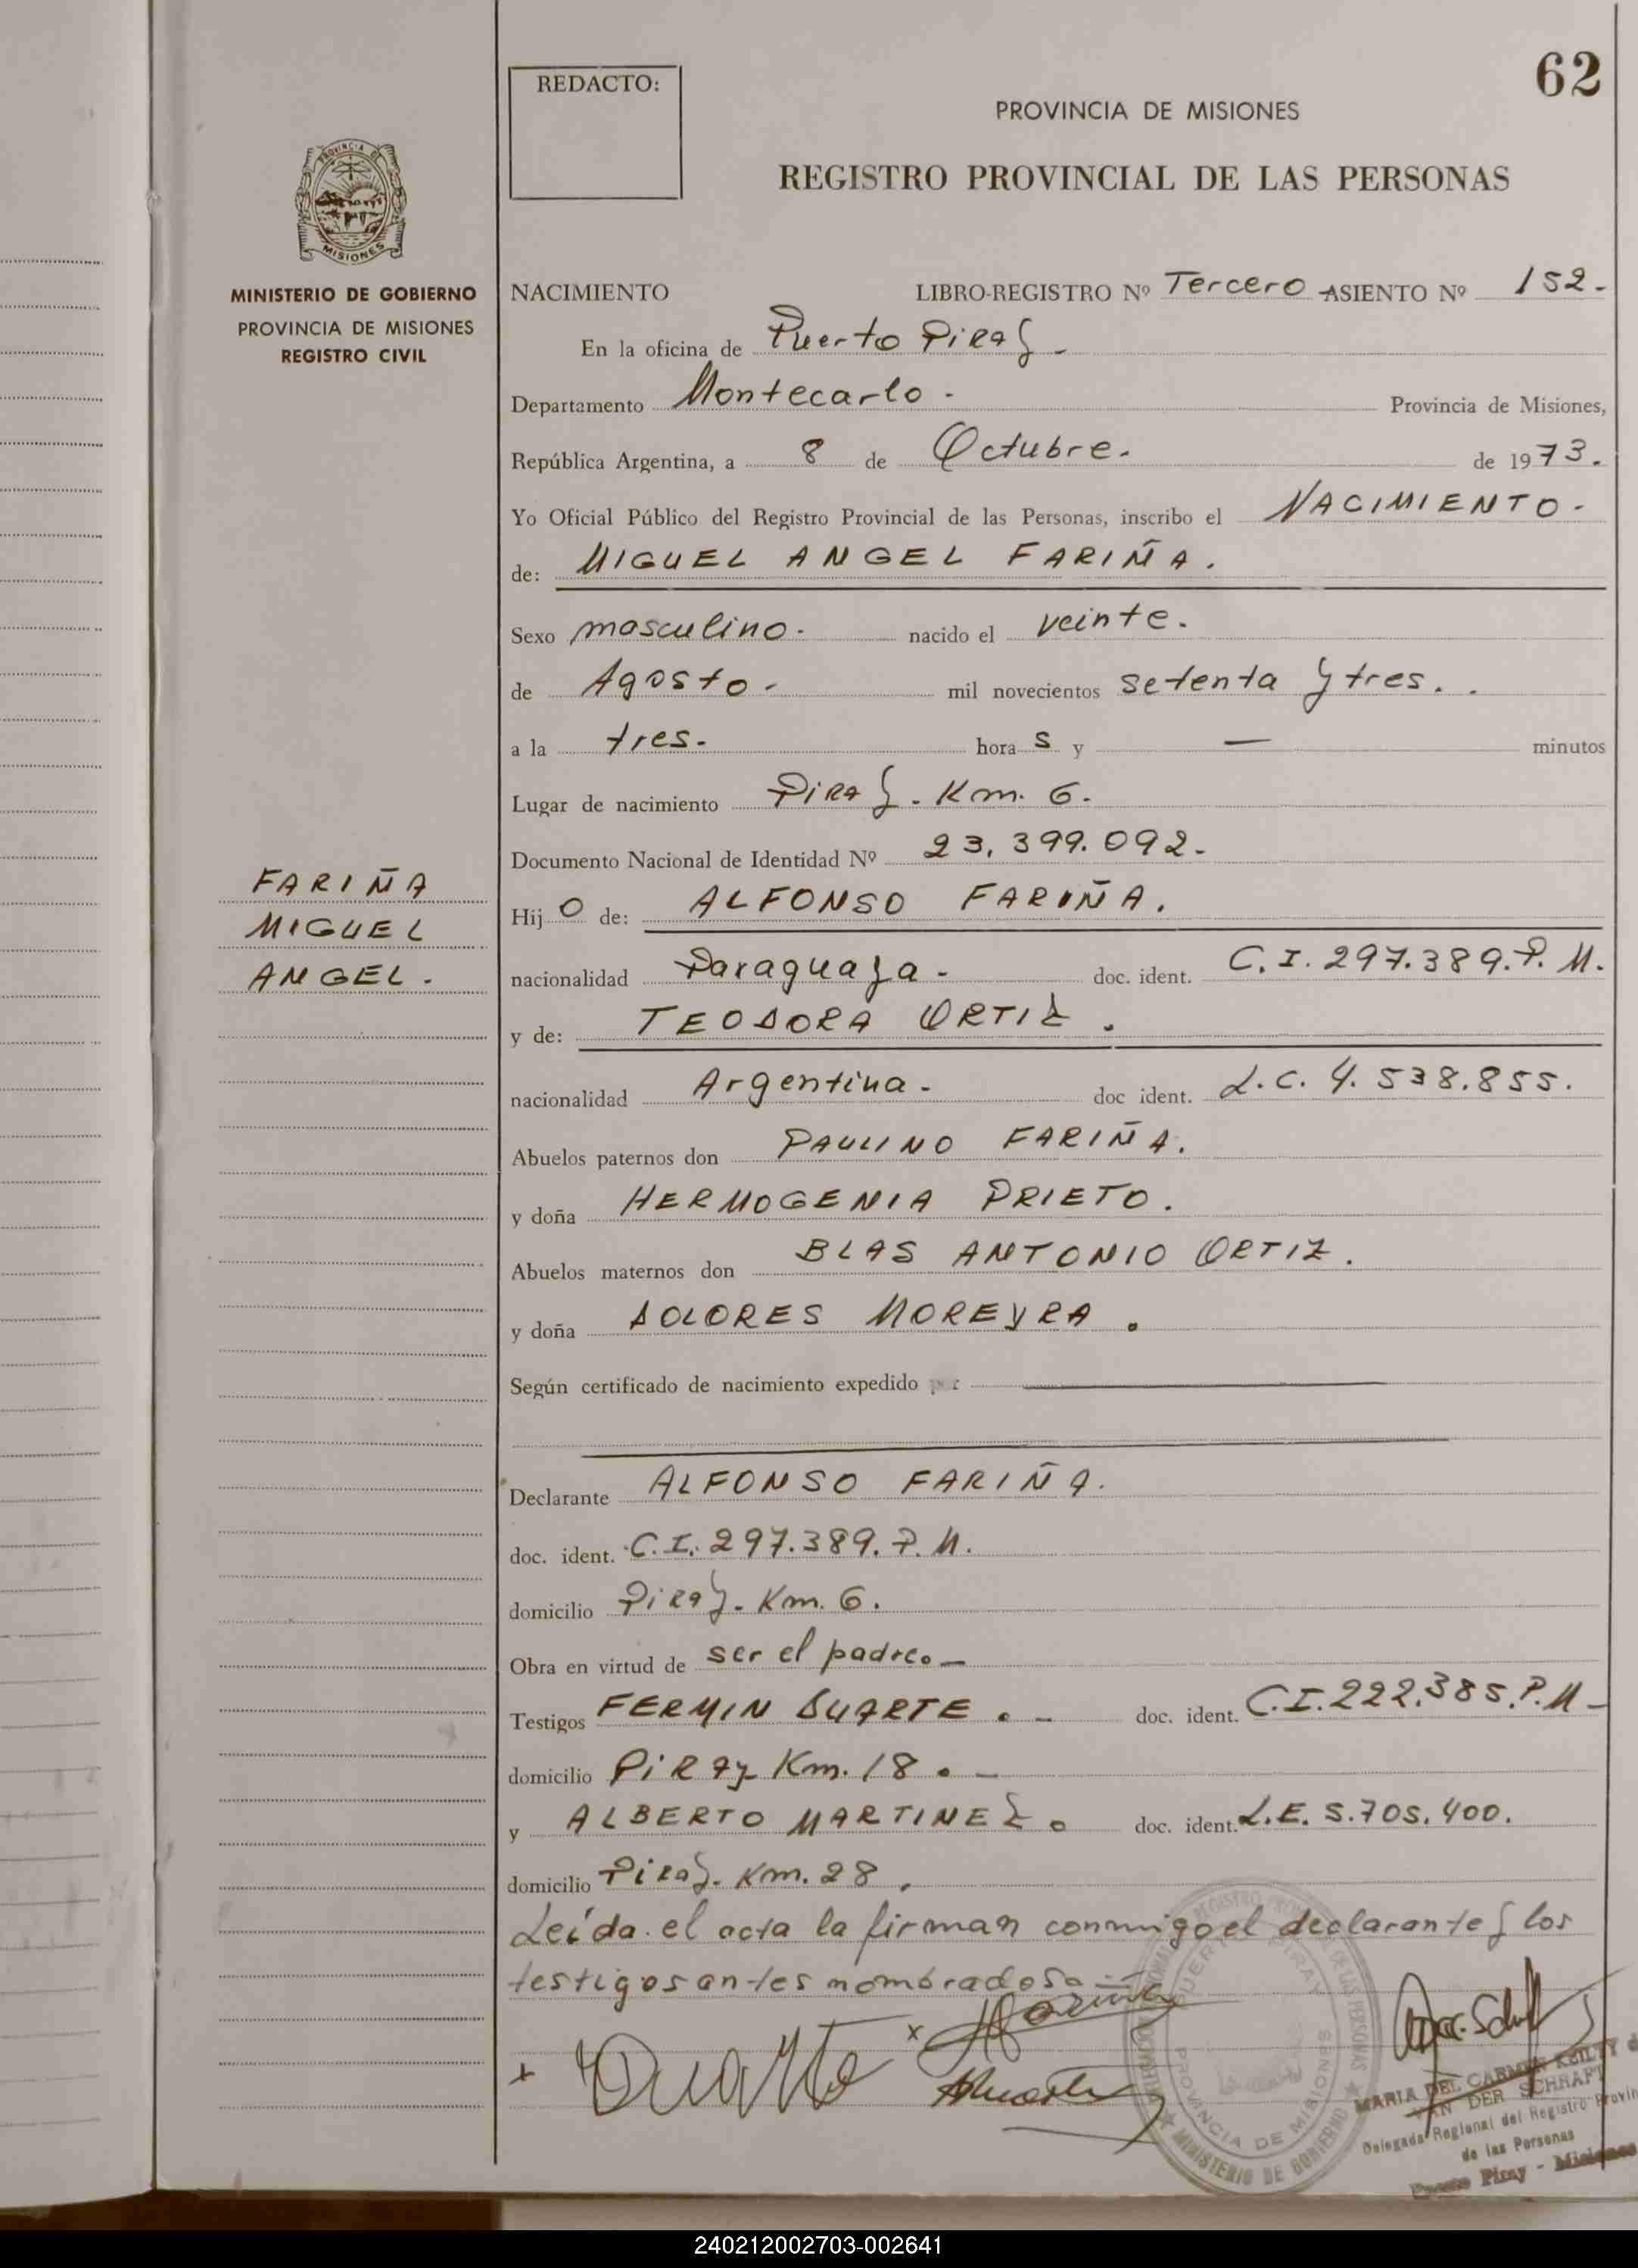 62
REDACTO:
PROVINCIA DE MISIONES
REGISTRO PROVINCIAL DE LAS PERSONAS
PROVINCIA DE
MISIONES
MINISTERIO DE GOBIERNO
PROVINCIA DE MISIONES
REGISTRO CIVIL
NACIMIENTO LIBRO-REGISTRO Nº Tercero ASIENTO Nº 152.
En la oficina de Puerto Piray.
Departamento Montecarlo. Provincia de Misiones,
República Argentina, a 8 de Octubre. de 1973.
Yo Oficial Público del Registro Provincial de las Personas, inscribo el NACIMIENTO.
de: MIGUEL ANGEL FARIÑA.
Sexo masculino. nacido el veinte.
de Agosto. mil novecientos setenta y tres.
a la tres. hora s y — minutos
Lugar de nacimiento Piray. Km. 6.
Documento Nacional de Identidad Nº 23.399.092.
FARIÑA
MIGUEL
ANGEL.
Hijo de: ALFONSO FARIÑA.
nacionalidad Paraguaya. doc. ident. C.I. 297.389.P.M.
y de: TEODORA ORTIZ.
nacionalidad Argentina. doc ident. L.C. 4.538.855.
Abuelos paternos don PAULINO FARIÑA.
y doña HERMOGENIA PRIETO.
Abuelos maternos don BLAS ANTONIO ORTIZ.
y doña DOLORES MOREYRA.
Según certificado de nacimiento expedido por
Declarante ALFONSO FARIÑA.
doc. ident. C.I. 297.389.P.M.
domicilio Piray. Km. 6.
Obra en virtud de ser el padre.—
Testigos FERMIN DUARTE.— doc. ident. C.I.222.385.P.M—
domicilio PiRAy Km. 18.—
y ALBERTO MARTINEZ. doc. ident. L.E. 5.705.400.
domicilio Piray. Km. 28.
Leída el acta la firman conmigo el declarante y los
testigos antes nombrados.—
Duarte
MARIA DEL CARMEN
VAN DER SCHRAFT
Delegada Regional del Registro Provin
de las Personas
Puerto Piray - Misiones
PUERTO PIRAY
PROVINCIA DE MISIONES
MINISTERIO DE GOBIERNO
240212002703-002641